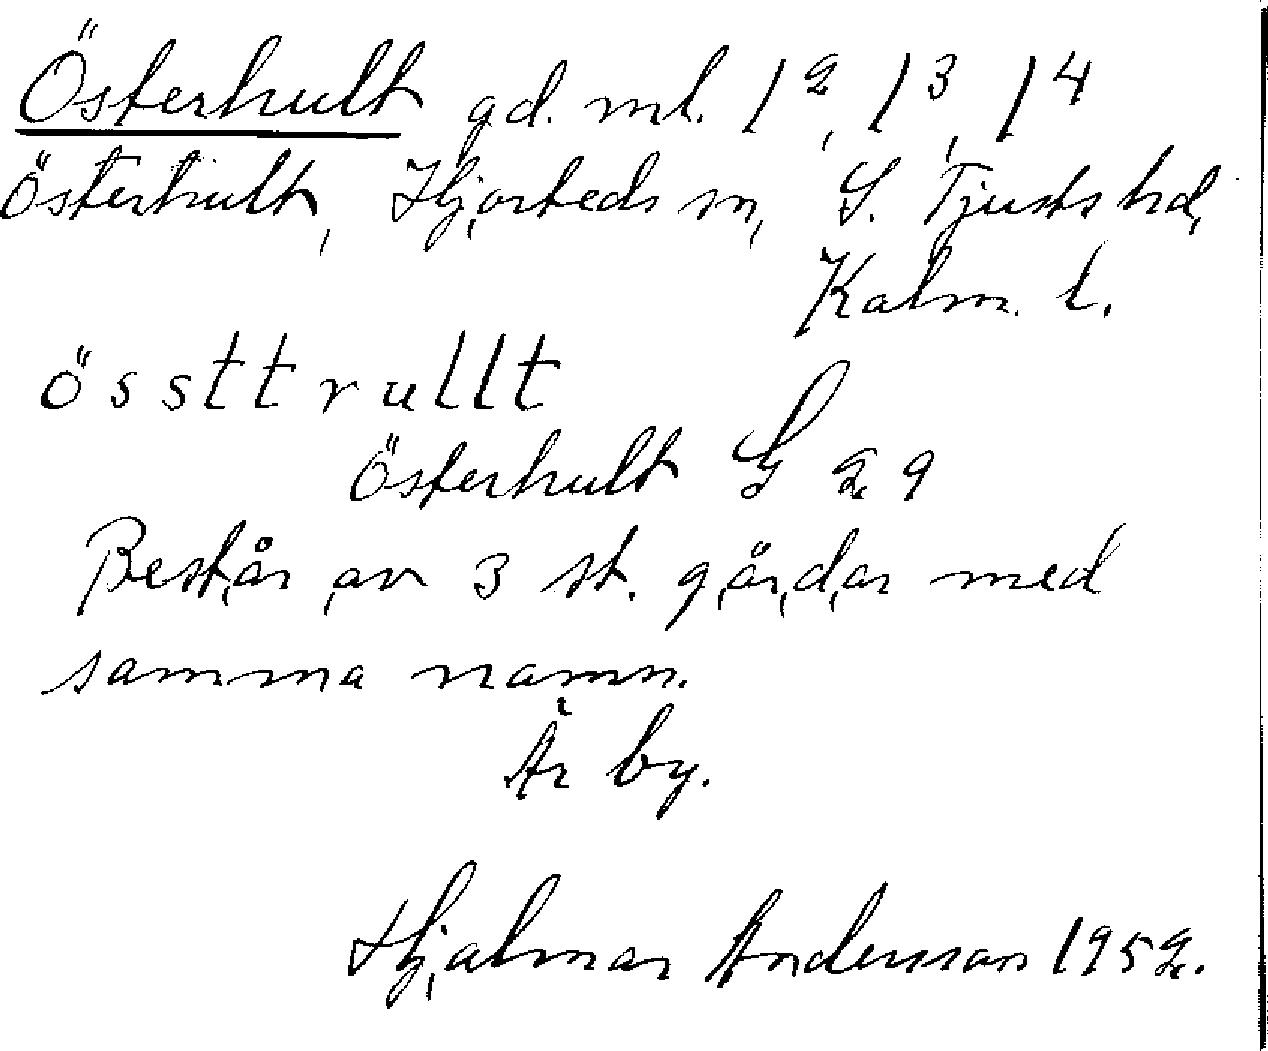 Österhult gd. ml. 1², 1³, 1⁴
Österhult, Hjorteds sn, S. Tjusts hd,
Kalm. l.
össttrullt
Österhult G 29
Består av 3 st. gårdar med
samma namn.
Är by.
Hjalmar Andersson 1952.